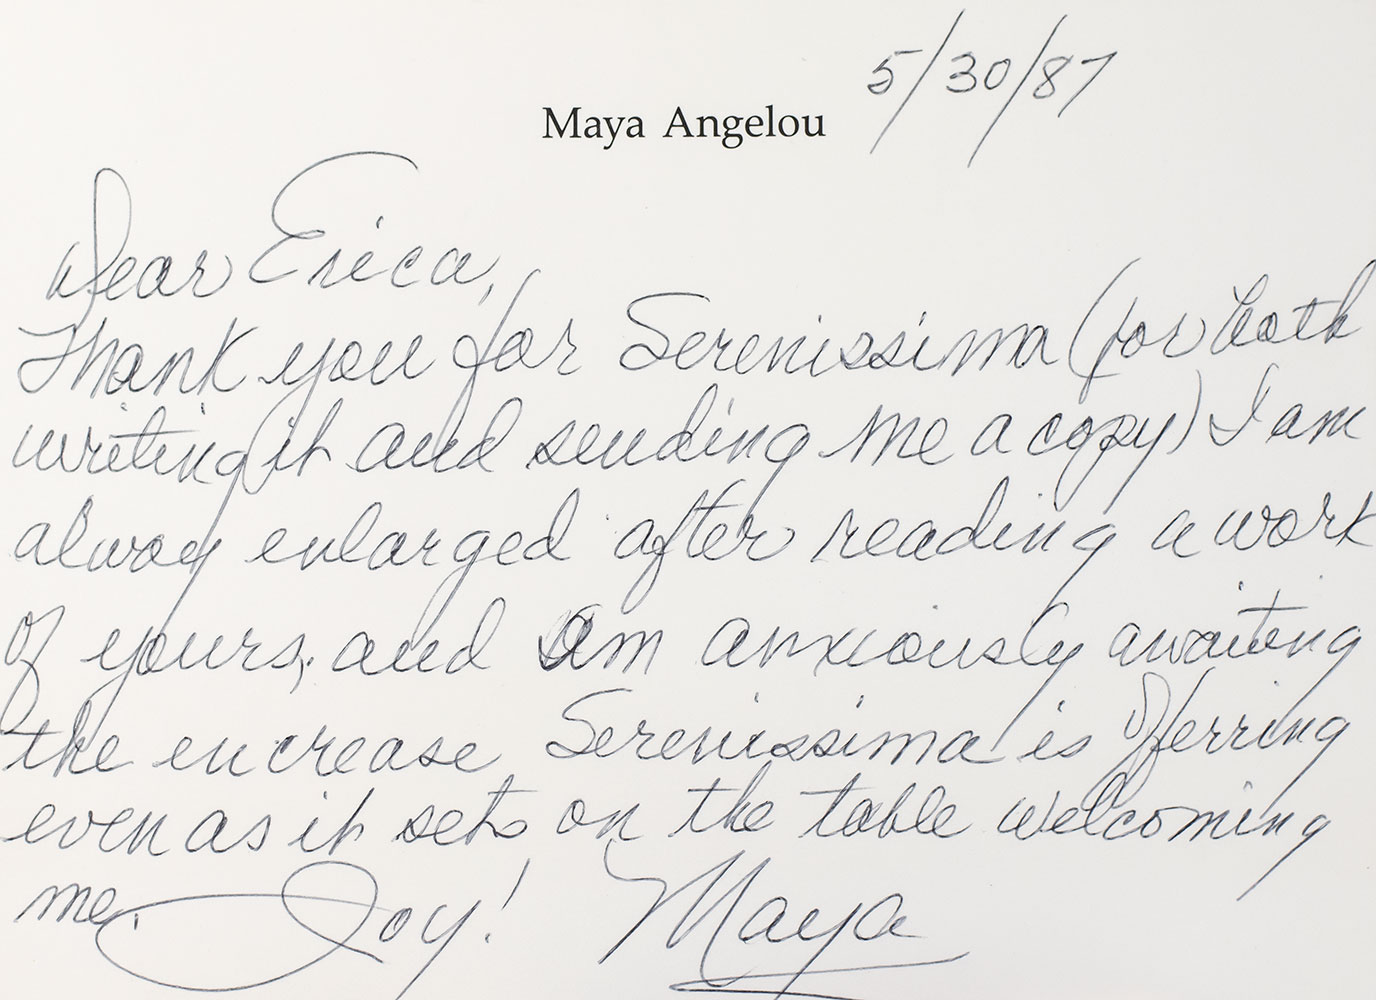 5/30/87
Maya Angelou
Dear Erica,
Thank you for Serenissima (for both
writing it and sending me a copy) I am
alway enlarged after reading a work
of yours, and am anxiously awaiting
the encrease Serenissima is offerring
even as it sets on the table welcoming
me. Joy! Maya